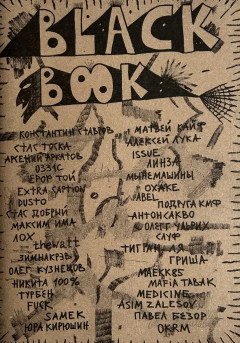 BLACK
BOOK
КОНСТАНТИН СТАВРОВ
СТАС ТОСКА
АРСЕНИЙ АРКАТОВ
ЕРОР ТОЙ
EXTRA CAPTION
DUSTO
СТАС ДОБРЫЙ
МАКСИМ ИМА
ЛОХ
thewatt
ЗИМНАКРЭВ
ОЛЕГ КУЗНЕЦОВ
НИКИТА 100%
ТУРБЕН
FUCK
SAMEK
ЮРА КИРЮШИН
МАТВЕЙ КАЙТ
АЛЕКСЕЙ ЛУКА
ISSUE
ЛИНЗА
МЫНЕМАШИНЫ
ОХАКЕ
ABEL
ПОДРУГА КИФ
АНТОН САКВО
СЛУФ
ТИГРАН
ГРИША
MAEKK85
MAFIA ТАБАК
MEDICINE
ASIM ZALESOV
ПАВЕЛ БЕЗОР
OKRM